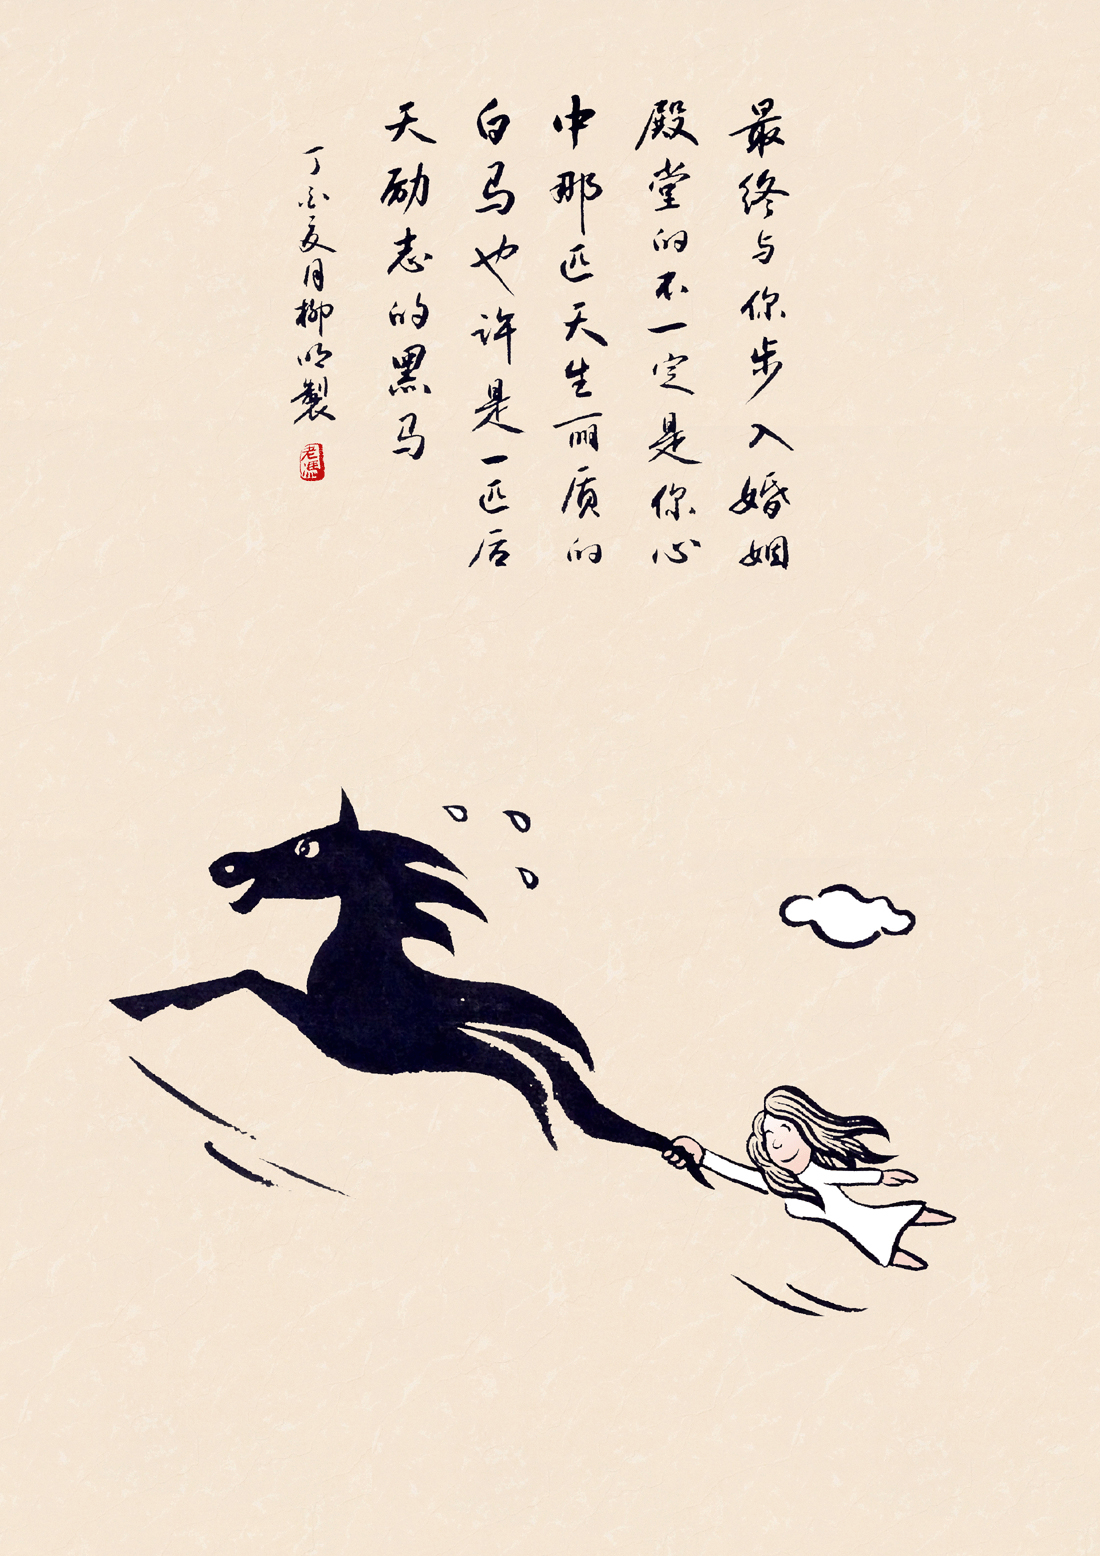 最终与你步入婚姻
殿堂的不一定是你心
中那匹天生丽质的
白马也许是一匹后
天励志的黑马
丁 夏月柳 製
老馮